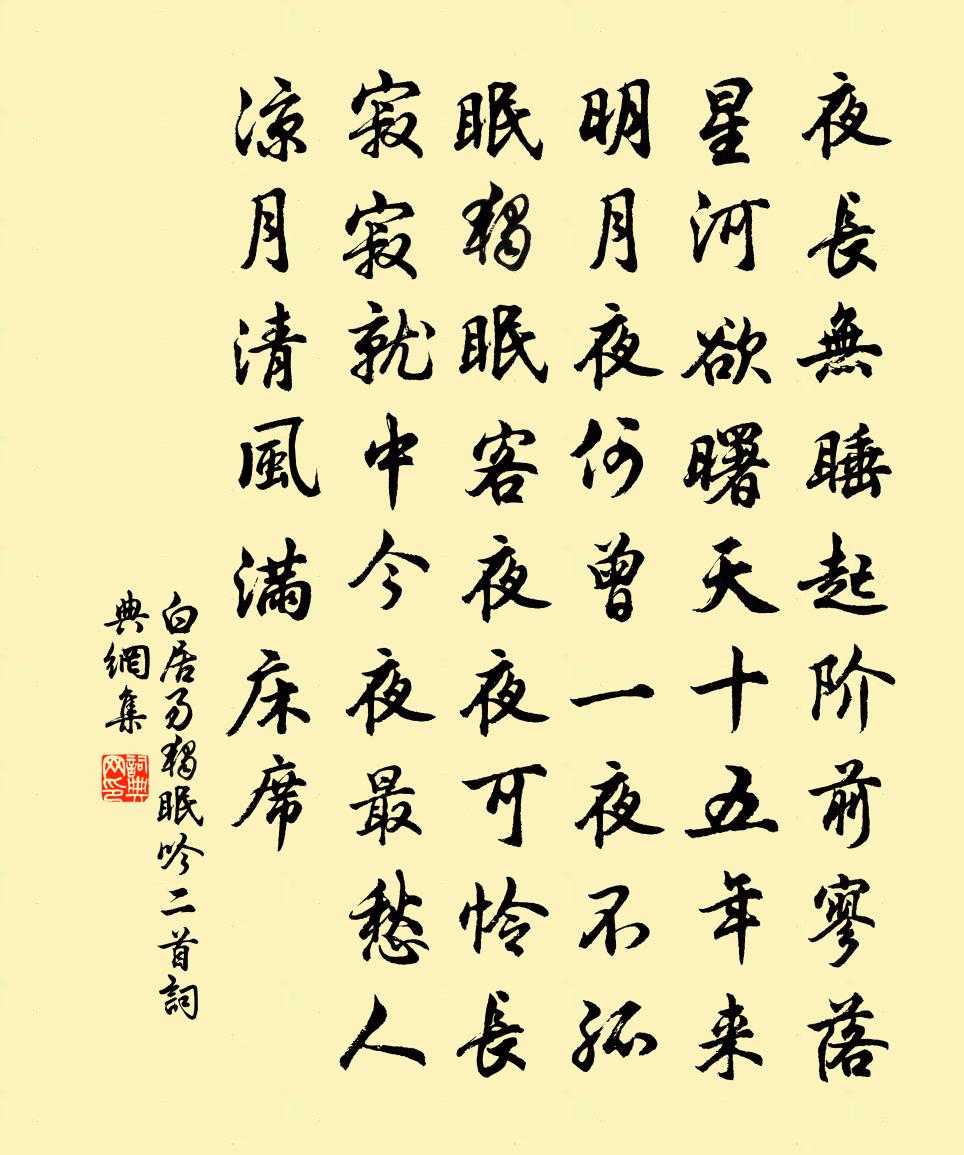 夜長無睡起阶前寥落
星河欲曙天十五年来
明月夜何曾一夜不孤
眠獨眠客夜夜可憐長
寂寂就中今夜最愁人
凉月清風满床席
白居易獨眠吟二首詞
典網集
詞典网印